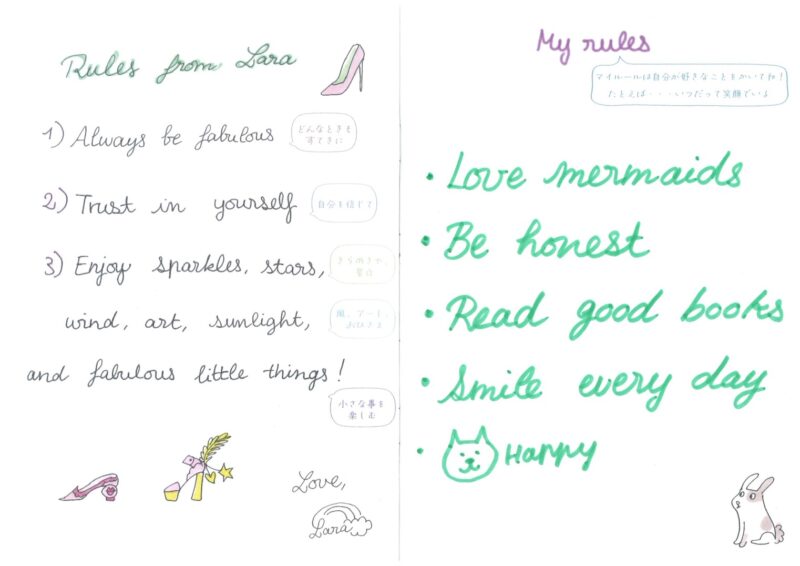 Rules from Lara
1) Always be fabulous
どんなときも
すてきに
2) Trust in yourself
自分を信じて
3) Enjoy sparkles, stars,
きらめきや、
星や
wind, art, sunlight,
風、アート、
おひさま
and fabulous little things!
小さな事を
楽しむ
Love,
Lara
My rules
マイルールは自分が好きなことをかいてね！
たとえば・・・いつだって笑顔でいる
• Love mermaids
• Be honest
• Read good books
• Smile every day
• Happy